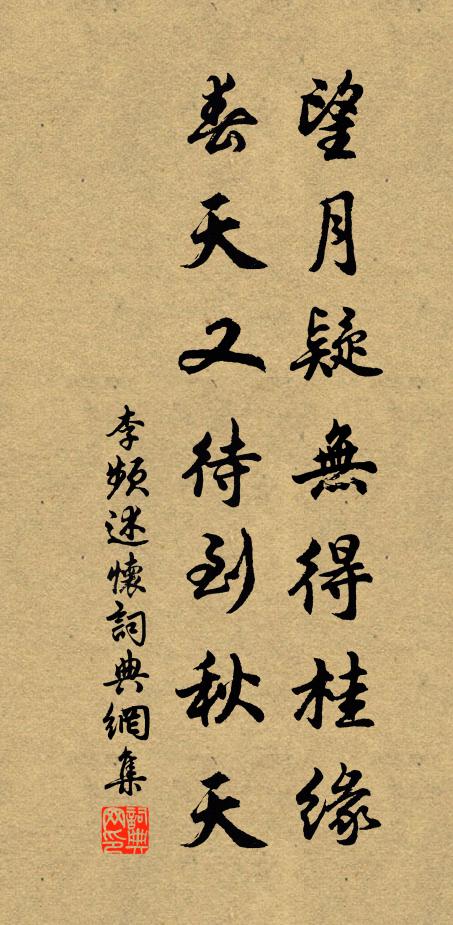 望月疑無得桂緣
春天又待到秋天
李頻述懷詞典網集
詞典网印